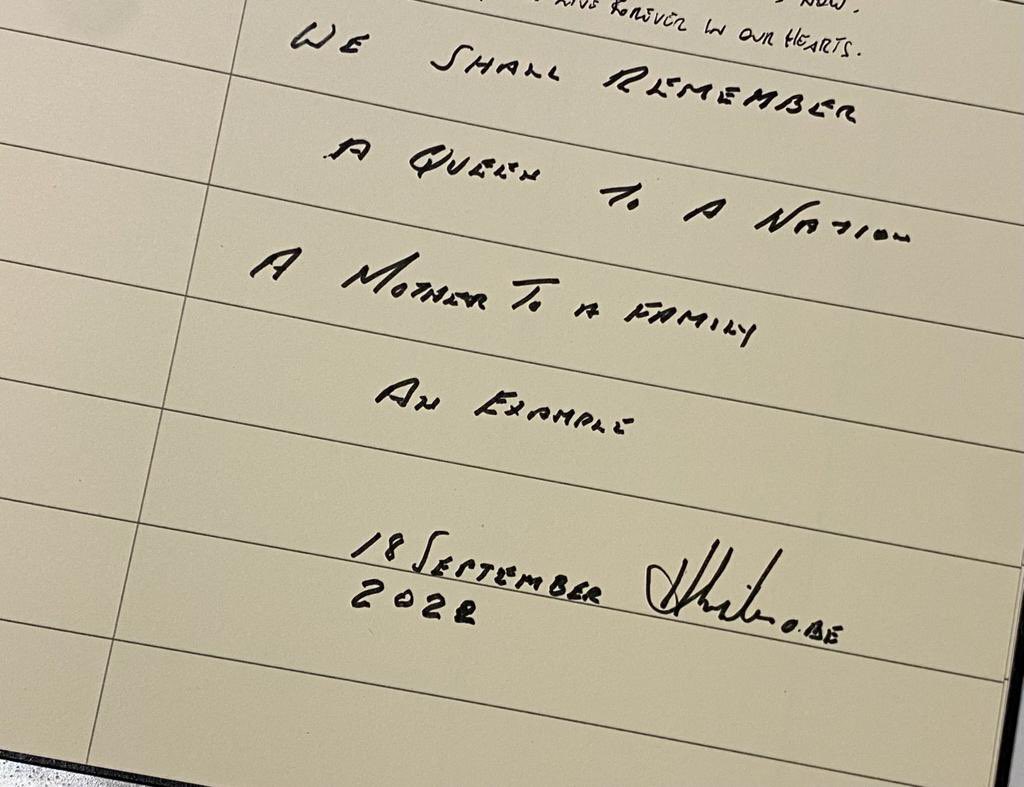 NOW.
LIVE FOREVER IN OUR HEARTS.
WE SHALL REMEMBER
A QUEEN TO A NATION
A MOTHER TO A FAMILY
AN EXAMPLE
18 SEPTEMBER
2022
O.BE